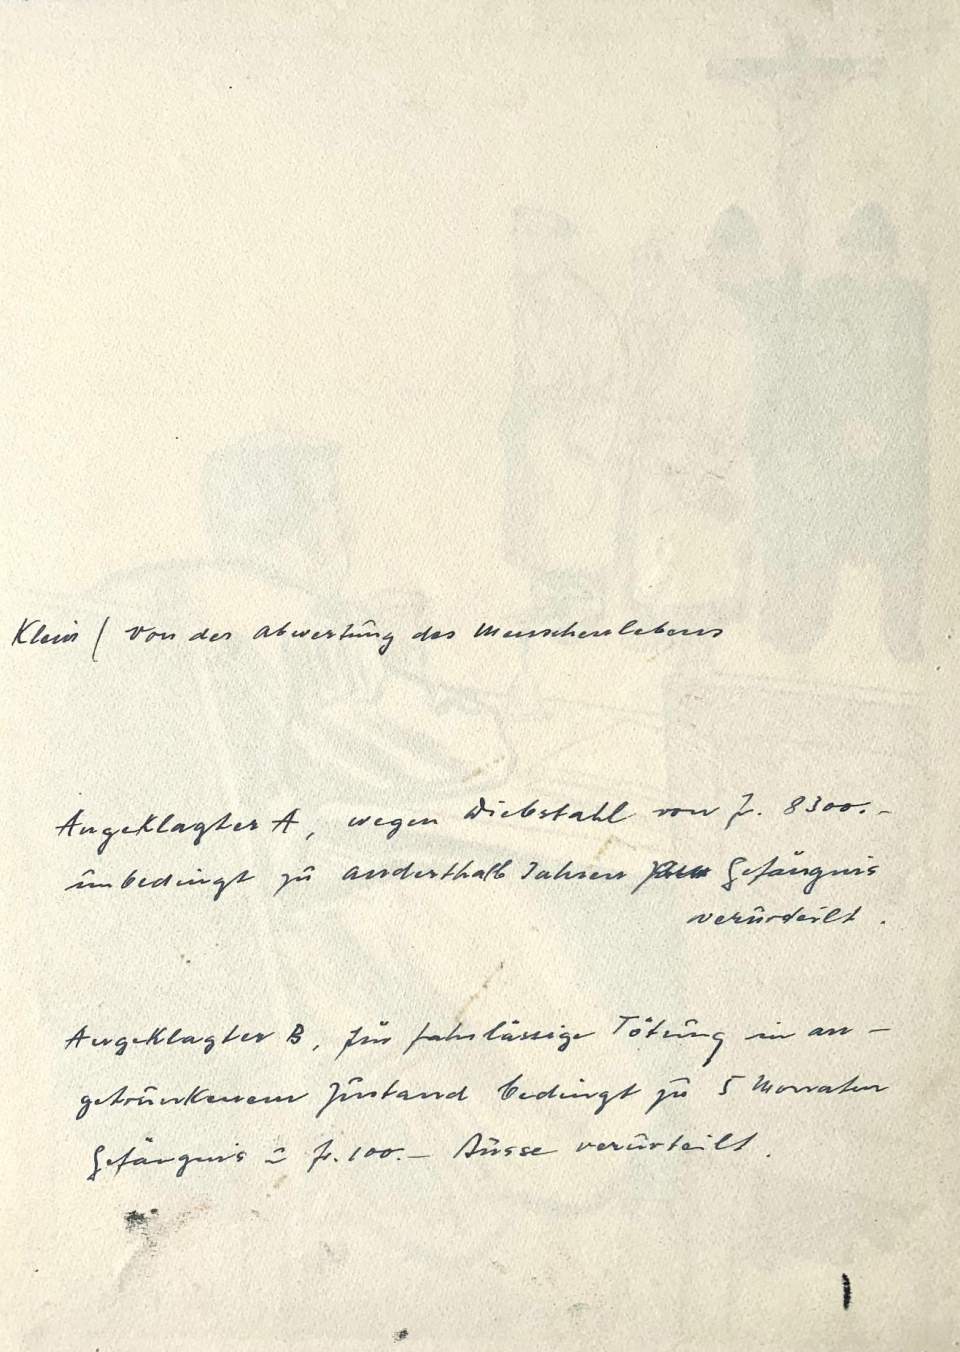 Klein / Von der Abwertung des Menschenlebens
Angeklagter A, wegen Diebstahl von Fr. 8300.-
unbedingt zu anderthalb Jahren Gefängnis
verurteilt.
Angeklagter B, für fahrlässige Tötung in an-
getrunkenem Zustand bedingt zu 5 Monaten
Gefängnis u Fr. 100.- Busse verurteilt.